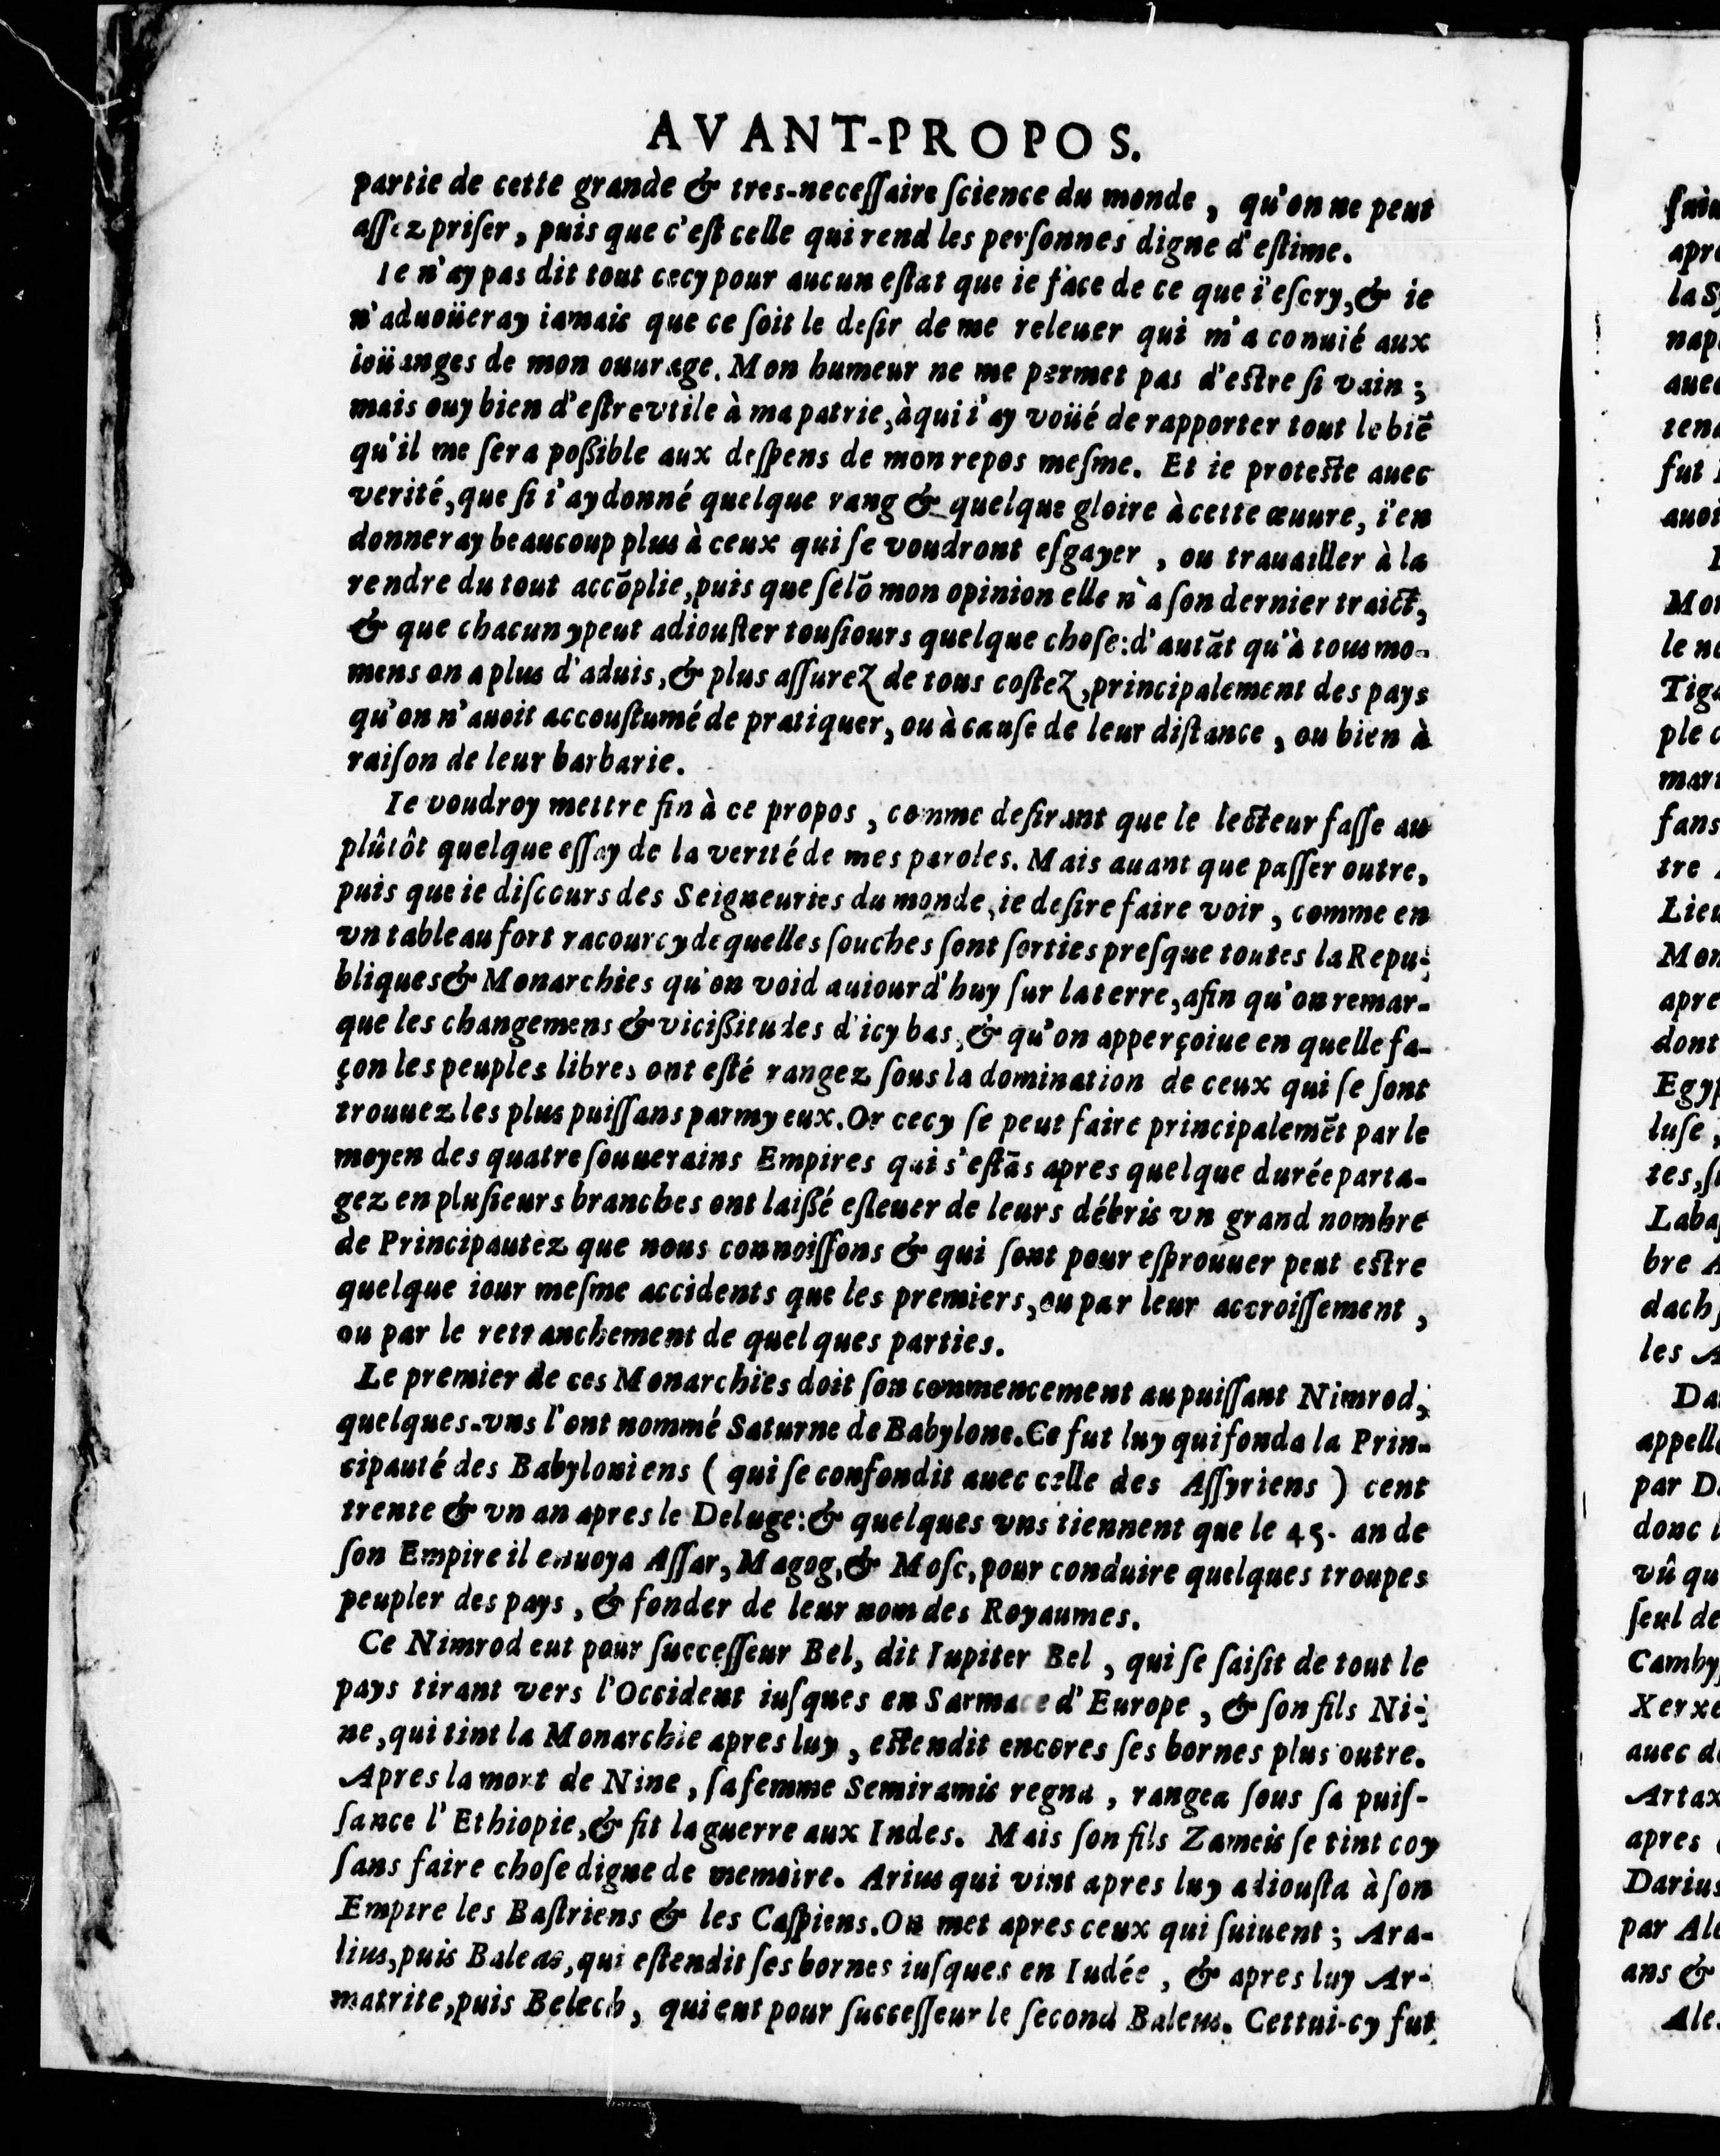 AVANT-PROPOS.
partie de cette grande & tres-neceſſaire ſcience du monde, qu'on ne peut
aſſez priſer, puis que c'eſt celle qui rend les perſonnes digne d'eſtime.
Ie n'ay pas dit tout cecy pour aucun eſtat que ie face de ce que i'eſcry, & ie
n'aduoüeray iamais que ce ſoit le deſir de me releuer qui m'a conuié aux
ioüanges de mon ouurage. Mon humeur ne me permet pas d'eſtre ſi vain ;
mais ouy bien d'eſtre vtile à ma patrie, à qui i'ay voüé de rapporter tout le biẽ
qu'il me ſera poßible aux deſpens de mon repos meſme. Et ie proteſte auec
verité, que ſi i'ay donné quelque rang & quelque gloire à cette œuure, i'en
donneray beaucoup plus à ceux qui ſe voudront eſgayer, ou trauailler à la
rendre du tout accõplie, puis que ſelõ mon opinion elle n'a ſon dernier traict,
& que chacun y peut adiouſter touſiours quelque choſe: d'autãt qu'à tous mo-
mens on a plus d'aduis, & plus aſſurez de tous coſtez, principalement des pays
qu'on n'auoit accouſtumé de pratiquer, ou à cauſe de leur diſtance, ou bien à
raiſon de leur barbarie.
Ie voudroy mettre fin à ce propos, comme deſirant que le lecteur faſſe au
plûtôt quelque eſſay de la verité de mes paroles. Mais auant que paſſer outre,
puis que ie diſcours des Seigneuries du monde, ie deſire faire voir, comme en
vn tableau fort racourcy de quelles ſouches ſont ſorties preſque toutes la Repu-
bliques & Monarchies qu'on void auiourd'huy ſur la terre, afin qu'on remar-
que les changemens & vicißitudes d'icy bas, & qu'on apperçoiue en quelle fa-
çon les peuples libres ont eſté rangez ſous la domination de ceux qui ſe ſont
trouuez les plus puiſſans parmy eux. Or cecy ſe peut faire principalemẽt par le
moyen des quatre ſouuerains Empires qui s'eſtãs apres quelque durée parta-
gez en pluſieurs branches ont laißé eſleuer de leurs débris vn grand nombre
de Principautez que nous connoiſſons & qui ſont pour eſprouuer peut eſtre
quelque iour meſme accidents que les premiers, ou par leur accroiſſement,
ou par le retranchement de quelques parties.
Le premier de ces Monarchies doit ſon commencement au puiſſant Nimrod;
quelques-vns l'ont nommé Saturne de Babylone. Ce fut luy qui fonda la Prin-
cipauté des Babyloniens ( qui ſe confondit auec celle des Aſſyriens ) cent
trente & vn an apres le Deluge: & quelques vns tiennent que le 45. an de
ſon Empire il enuoya Aſſar, Magog, & Moſc, pour conduire quelques troupes
peupler des pays, & fonder de leur nom des Royaumes.
Ce Nimrod eut pour ſucceſſeur Bel, dit Iupiter Bel, qui ſe ſaiſit de tout le
pays tirant vers l'Occident iuſques en Sarmace d'Europe, & ſon fils Ni-
ne, qui tint la Monarchie apres luy, eſtendit encores ſes bornes plus outre.
Apres la mort de Nine, ſa femme Semiramis regna, rangea ſous ſa puiſ-
ſance l'Ethiopie, & fit la guerre aux Indes. Mais ſon fils Zameis ſe tint coy
ſans faire choſe digne de memoire. Arius qui vint apres luy adiouſta à ſon
Empire les Baſtriens & les Caſpiens. On met apres ceux qui ſuiuent ; Ara-
lius, puis Baleas, qui eſtendit ſes bornes iuſques en Iudée, & apres luy Ar-
matrite, puis Belech, qui eut pour ſucceſſeur le ſecond Baleus. Cettui-cy fut
apre
la S
nap
auec
tena
fut
auoi
Mon
le ne
Tig
ple
mar
fans
tre
Lieu
Mon
apre
dont
Egyp
luſe,
tes, ſ
Laba
bre A
dach
les A
Da
appelle
par D
donc
vû qu
ſeul de
Camby
Xerxe
auec d
Artax
apres
Darius
par Ale
ans &
Ale